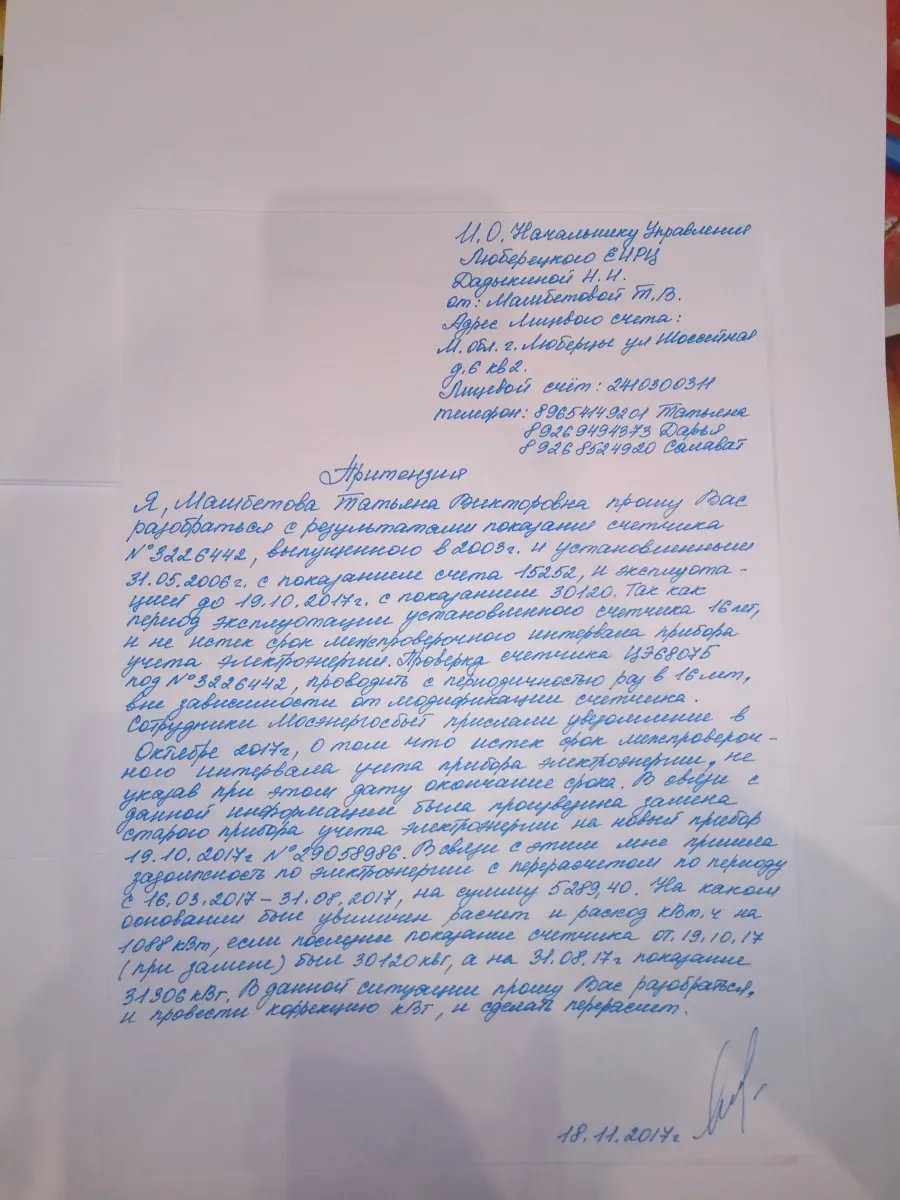 И.О. Начальнику Управления
Люберецкого ЕИРЦ
Дадыкиной Н.И.
от: Мамбетовой Т.В.
Адрес Лицевого счета:
М.обл. г. Люберцы ул Шоссейная
д.6 кв 2.
Лицевой счёт: 2410300311
телефон: 89654149201 Татьяна
89269494373 Дарья
89268524920 Салават
Притензия
Я, Мамбетова Татьяна Викторовна прошу Вас
разобраться с результатами показания счетчика
№3226442, выпущенного в 2003г. и установленным
31.05.2006г. с показанием счета 15252, и эксплуота-
цией до 19.10.2017г. с показанием 30120. Так как
период эксплуотации установленного счетчика 16 лет,
и не истек срок межпроверочного интервала прибора
учета электроэнергии. Проверка счетчика ЦЭ6807Б
под №3226442, проводить с периодичностью раз в 16 лет,
вне зависимости от модификации счетчика.
Сотрудники Мосэнергосбыт прислали уведомление в
Октябре 2017г, о том что истек срок межпровероч-
ного интервала учета прибора электроэнергии, не
указав при этом дату окончание срока. В связи с
данной информацией была процведина замена
старого прибора учета электроэнергии на новый прибор
19.10.2017г №29058986. В связи с этим мне пришла
задолжность по электроэнергии с перерасчетом по периоду
с 16.03.2017 – 31.08.2017, на сумму 5289,40. На каком
основании был увиличен расчет и расход кВт.ч на
1088 кВт, если последние показание счетчика от 19.10.17
(при замене) был 30120 квт, а на 31.08.17г показание
31306 кВт. В данной ситуации прошу Вас разобраться,
и провести коррекцию кВт, и сделать перерасчет.
18.11.2017г